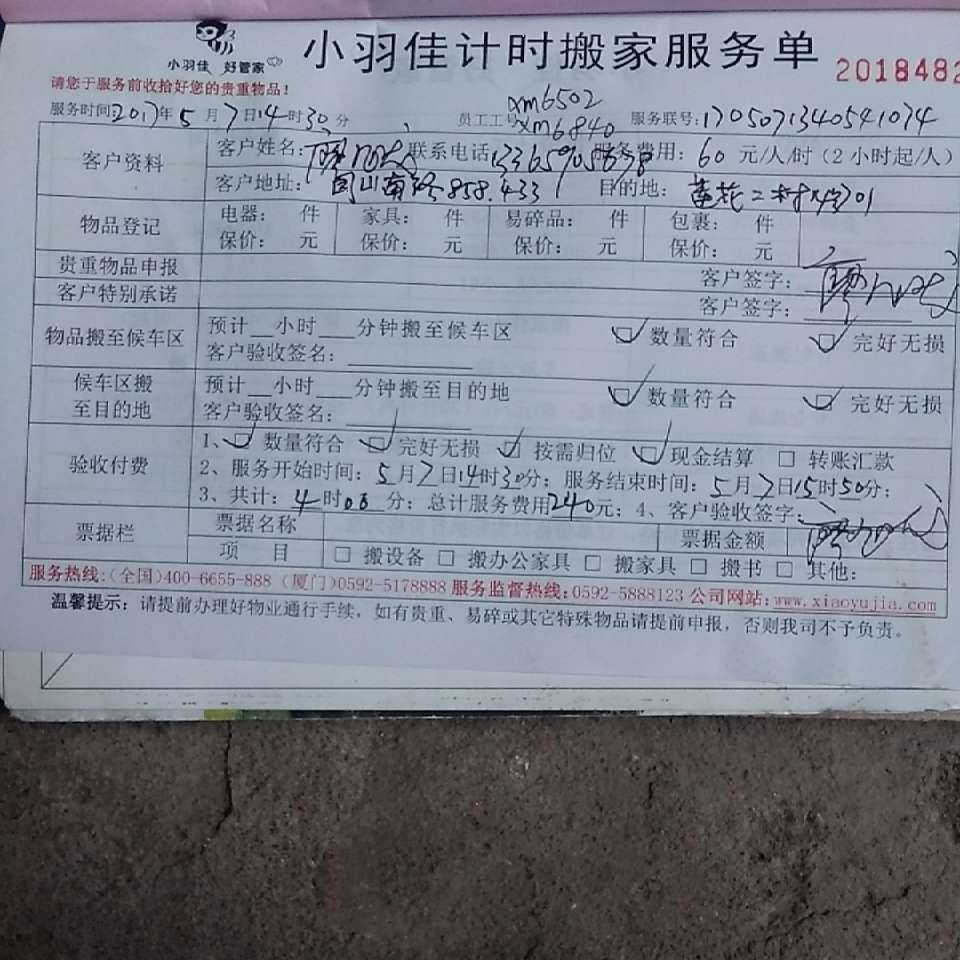 小羽佳 好管家
小羽佳计时搬家服务单
2018482
请您于服务前收拾好您的贵重物品！
服务时间:2017年5月7日14时30分 员工工号 xm6502 xm6840 服务联号:1705071340541074
客户资料
客户姓名: 联系电话 服务费用: 60 元/人/时（2小时起/人）
客户地址: 南路858.433 目的地: 莲花二村
物品登记
电器： 件 家具： 件 易碎品： 件 包裹： 件
保价： 元 保价： 元 保价： 元 保价： 元
贵重物品申报 客户签字：
客户特别承诺 客户签字：
物品搬至候车区
预计__小时___分钟搬至候车区 数量符合 完好无损
客户验收签名：
候车区搬至目的地
预计__小时___分钟搬至目的地 数量符合 完好无损
客户验收签名：
验收付费
1、 数量符合 完好无损 按需归位 现金结算 □ 转账汇款
2、服务开始时间：5月7日14时30分；服务结束时间：5月7日15时50分；
3、共计：4时00分；总计服务费用240元；4、客户验收签字：
票据栏
票据名称 票据金额
项 目 □ 搬设备 □ 搬办公家具 □ 搬家具 □ 搬书 □ 其他：
服务热线:(全国)400-6655-888 (厦门)0592-5178888 服务监督热线:0592-5888123 公司网站:www.xiaoyujia.com
温馨提示：请提前办理好物业通行手续，如有贵重、易碎或其它特殊物品请提前申报，否则我司不予负责。